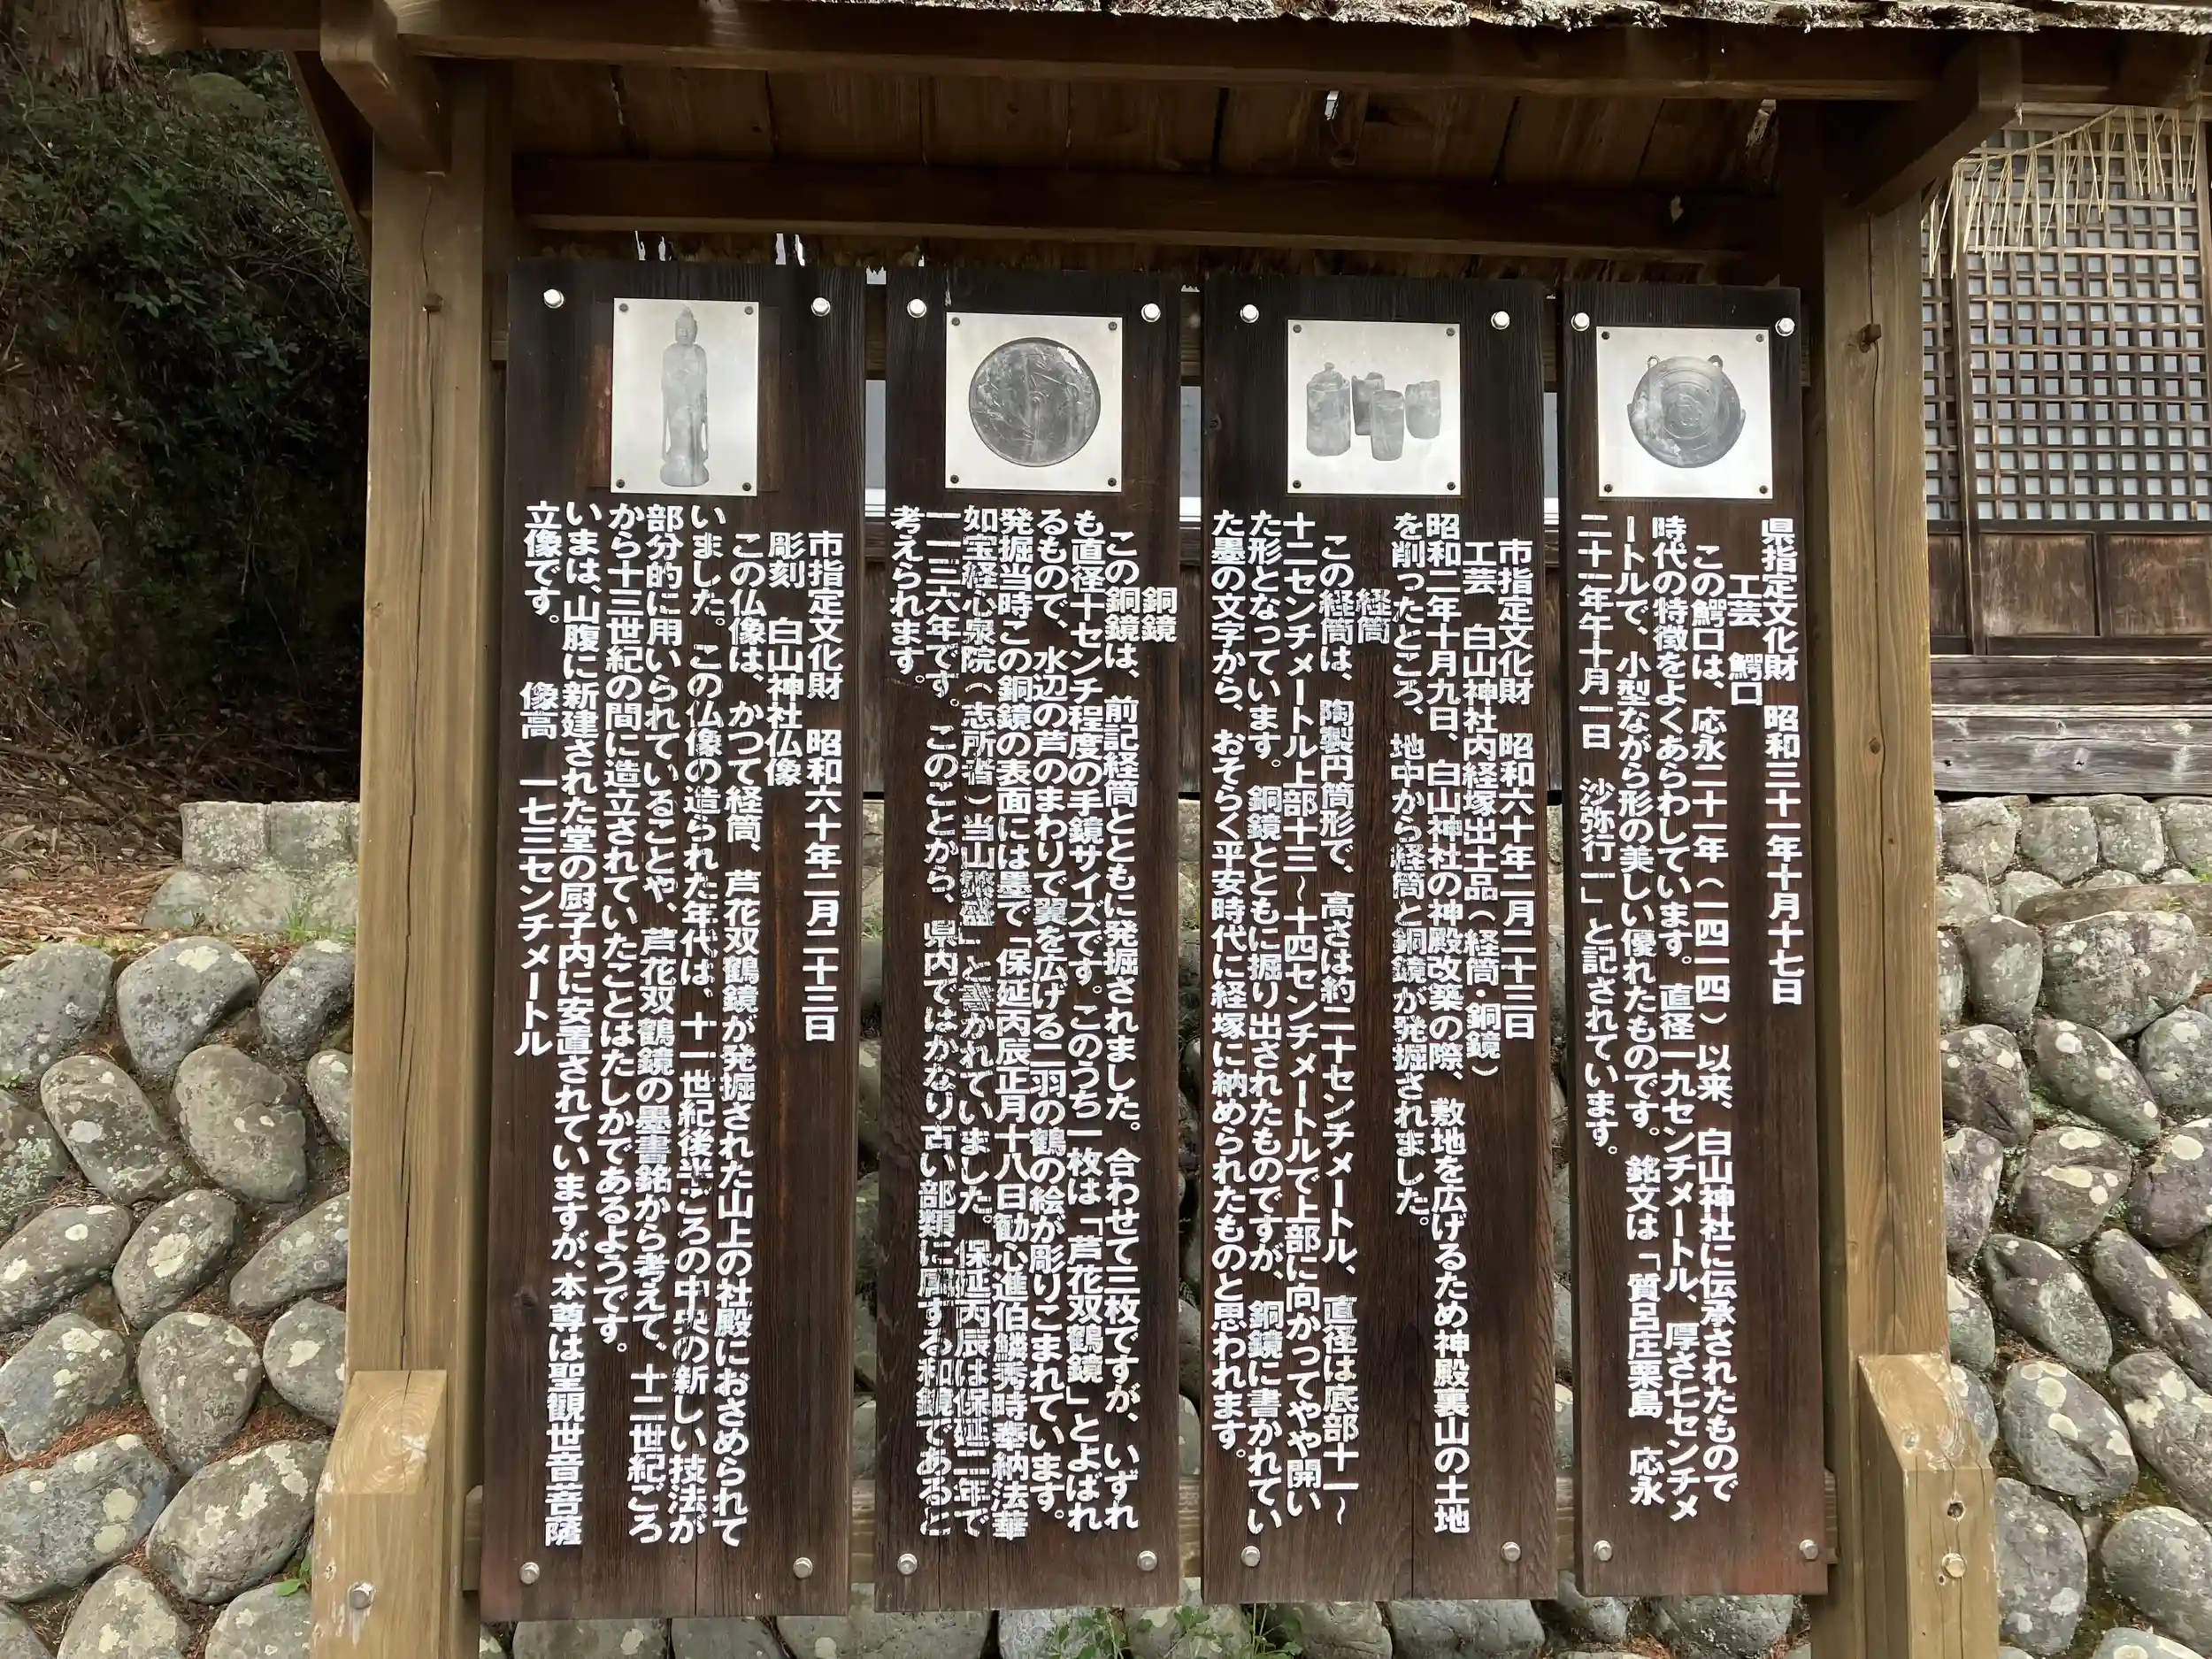 県指定文化財　昭和三十一年十月十七日
工芸　鰐口
この鰐口は、応永二十一年（一四一四）以来、白山神社に伝承されたもので
時代の特徴をよくあらわしています。直径一九センチメートル、厚さ七センチメ
ートルで、小型ながら形の美しい優れたものです。銘文は「質呂庄栗島　応永
二十一年午十月一日　沙弥行一」と記されています。
市指定文化財　昭和六十年二月二十三日
工芸　白山神社内経塚出土品（経筒・銅鏡）
昭和二年十月九日、白山神社の神殿改築の際、敷地を広げるため神殿裏山の土地
を削ったところ、地中から経筒と銅鏡が発掘されました。
経筒
この経筒は、陶製円筒形で、高さは約二十センチメートル、直径は底部十一～
十二センチメートル上部十三～十四センチメートルで上部に向かってやや開い
た形となっています。銅鏡とともに掘り出されたものですが、銅鏡に書かれてい
た墨の文字から、おそらく平安時代に経塚に納められたものと思われます。
銅鏡
この銅鏡は、前記経筒とともに発掘されました。合わせて三枚ですが、いずれ
も直径十センチ程度の手鏡サイズです。このうち一枚は「芦花双鶴鏡」とよばれ
るもので、水辺の芦のまわりで翼を広げる二羽の鶴の絵が彫りこまれています。
発掘当時この銅鏡の表面には墨で「保延丙辰正月十八日勧心進伯鱗秀時奉納法華
如宝経心泉院（志所者）当山繁盛」と書かれていました。保延丙辰は保延二年で
一一三六年です。このことから、県内ではかなり古い部類に属する和鏡であると
考えられます。
市指定文化財　昭和六十年二月二十三日
彫刻　白山神社仏像
この仏像は、かつて経筒、芦花双鶴鏡が発掘された山上の社殿におさめられて
いました。この仏像の造られた年代は、十一世紀後半ごろの中央の新しい技法が
部分的に用いられていることや、芦花双鶴鏡の墨書銘から考えて、十二世紀ごろ
から十三世紀の間に造立されていたことはたしかであるようです。
いまは、山腹に新建された堂の厨子内に安置されていますが、本尊は聖観世音菩薩
立像です。　像高　一七三センチメートル